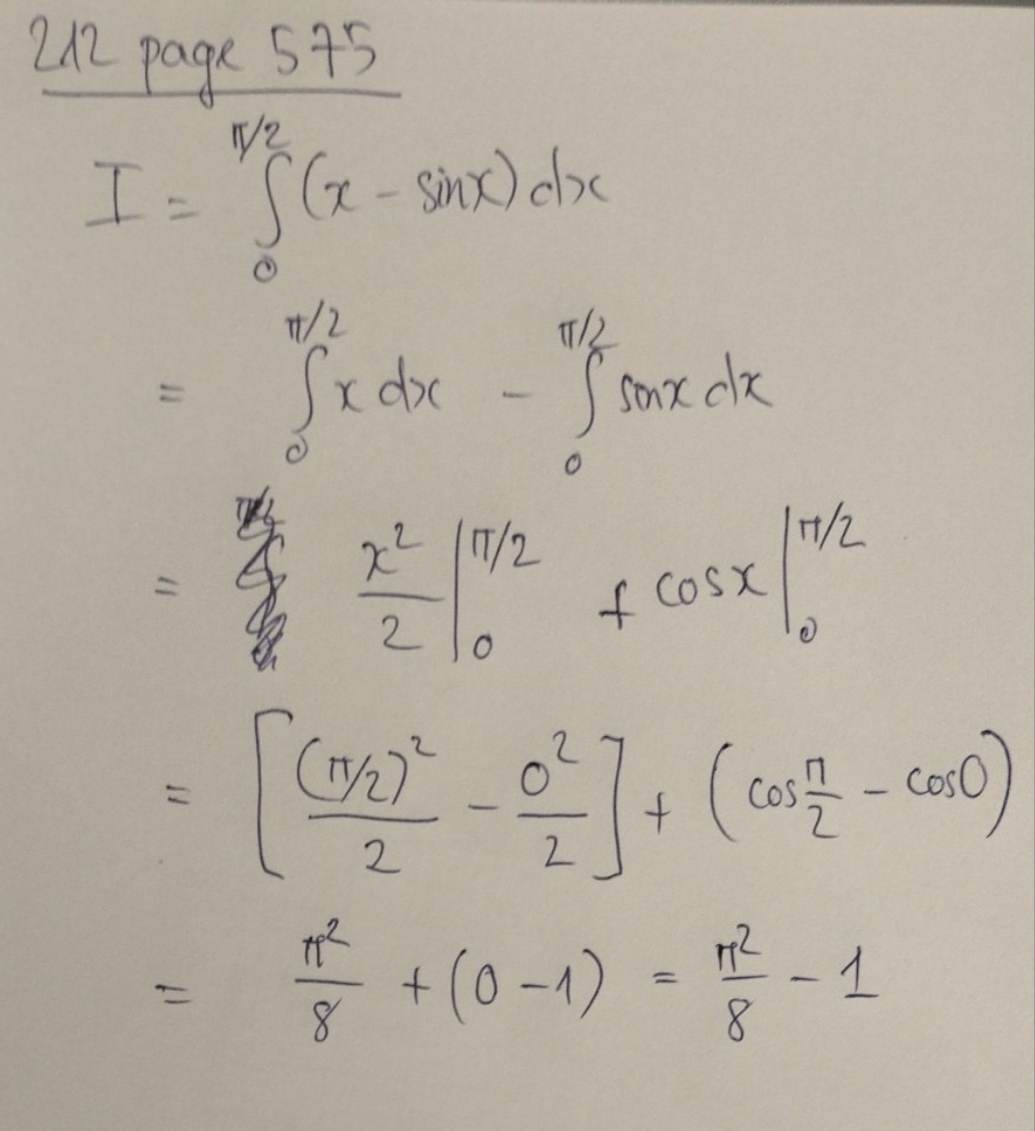 212 page 575
I = ∫₀^{π/2} (x - sinx) dx
= ∫₀^{π/2} x dx - ∫₀^{π/2} sinx dx
= x²/2 |₀^{π/2} + cosx |₀^{π/2}
= [(π/2)²/2 - 0²/2] + (cos π/2 - cos0)
= π²/8 + (0 - 1) = π²/8 - 1